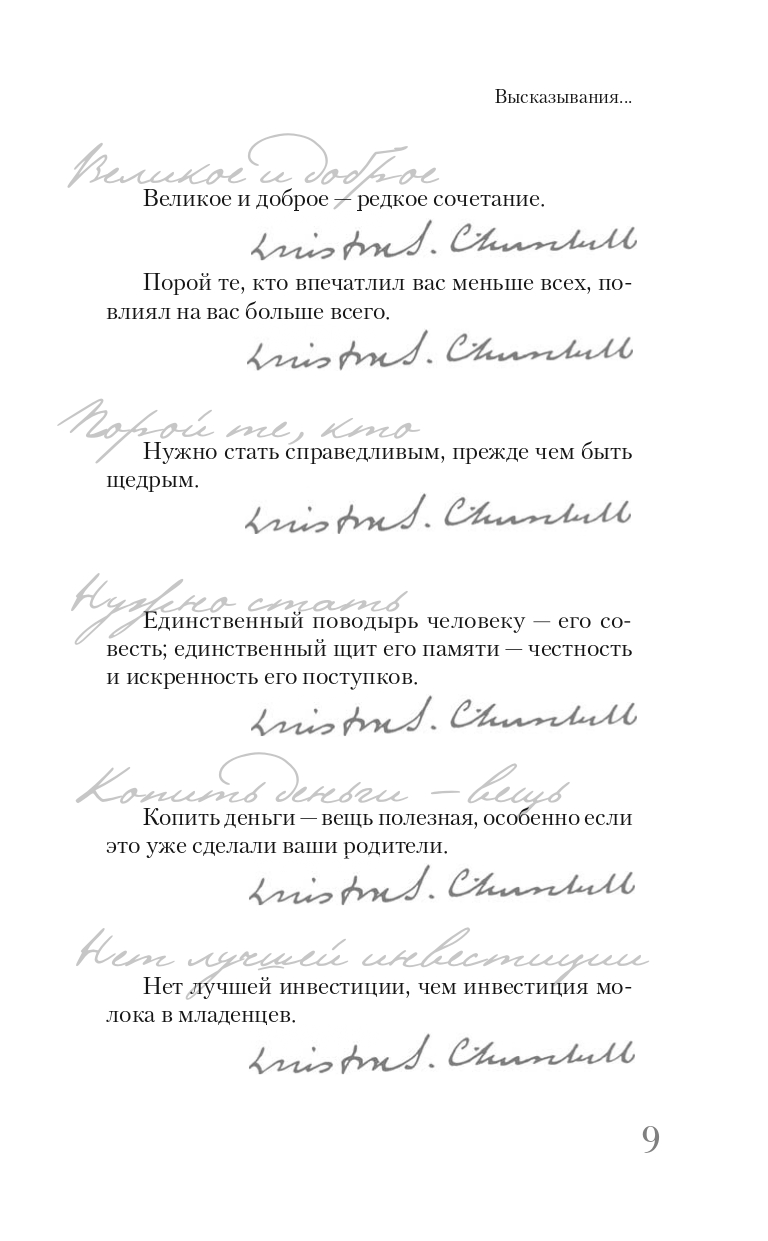 Высказывания...
Великое и доброе
Великое и доброе — редкое сочетание.
Winston S. Churchill
Порой те, кто впечатлил вас меньше всех, по-
влиял на вас больше всего.
Winston S. Churchill
Порой те, кто
Нужно стать справедливым, прежде чем быть
щедрым.
Winston S. Churchill
Нужно стать
Единственный поводырь человеку — его со-
весть; единственный щит его памяти — честность
и искренность его поступков.
Winston S. Churchill
Копить деньги — вещь
Копить деньги — вещь полезная, особенно если
это уже сделали ваши родители.
Winston S. Churchill
Нет лучшей инвестиции
Нет лучшей инвестиции, чем инвестиция мо-
лока в младенцев.
Winston S. Churchill
9